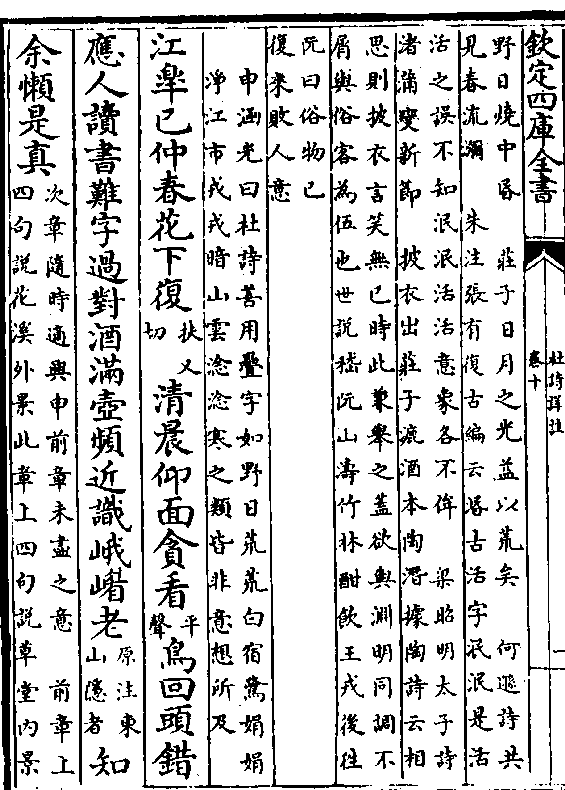 欽定四庫全書
杜詩詳註
卷十
野日燒中昏 莊子日月之光益以荒矣 何遜詩共
見春流瀰 朱注張有復古編云昏古活字泯泯是活
活之誤不知泯泯活活意象各不侔 梁昭明太子詩
渚蒲變新節 披衣出莊子漉酒本陶潛據陶詩云相
思則披衣言笑無已時此兼舉之蓋欲與淵明同調不
屑與俗客為伍也世說嵇阮山濤竹林酣飲王戎後往
阮曰俗物已
復来敗人意
申涵光曰杜詩善用疊字如野日荒荒白宿鷺娟娟
浄江市戎戎暗山雲淰淰寒之類皆非意想所及
江臯已仲春花下復扶又切清晨仰面貪看平聲鳥回頭錯
應人讀書難字過對酒滿壺頻近識峨嵋老原注東山隱者知
余懶是真
次章隨時適興申前章未盡之意 前章上
四句說花溪外景此章上四句說草堂内景